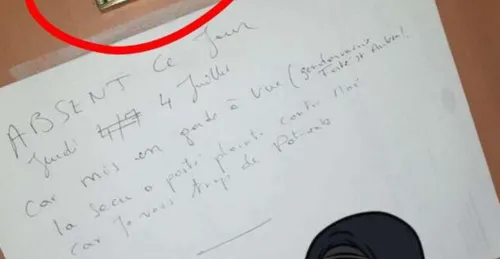 ABSENT Ce Jour
Jeudi 4 Juillet
Car mis en garde à vue (gendarmerie
Forte St Aubert
la secu a porté plainte contre moi
car je vois trop de Patients